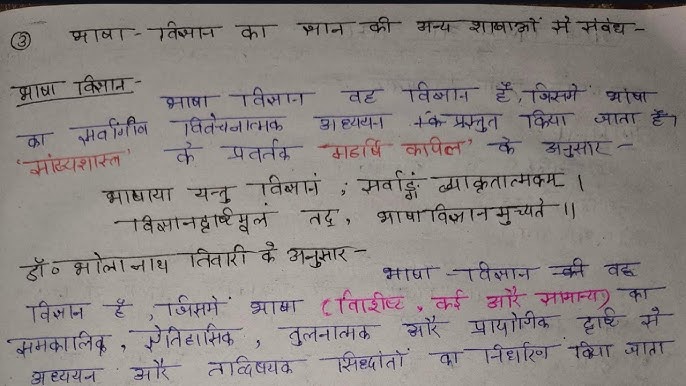 ③ भाषा-विज्ञान का ज्ञान की अन्य शाखाओं से संबंध-
भाषा विज्ञान-
भाषा विज्ञान वह विज्ञान है, जिसमें भाषा
का सर्वांगीण विवेचनात्मक अध्ययन प्रस्तुत किया जाता है।
'सांख्यशास्त्र' के प्रवर्तक 'महर्षि कपिल' के अनुसार-
भाषाया यन्तु विज्ञानं, सर्वाङ्गं व्याकृतात्मकम् ।
विज्ञानदृष्टिमूलं तद्, भाषाविज्ञानमुच्यते ।।
डॉ॰ भोलानाथ तिवारी के अनुसार-
भाषा-विज्ञान वह
विज्ञान है, जिसमें भाषा (विशिष्ट, कई और सामान्य) का
समकालिक, ऐतिहासिक, तुलनात्मक और प्रायोगिक दृष्टि से
अध्ययन और तद्विषयक सिद्धांतों का निर्धारण किया जाता